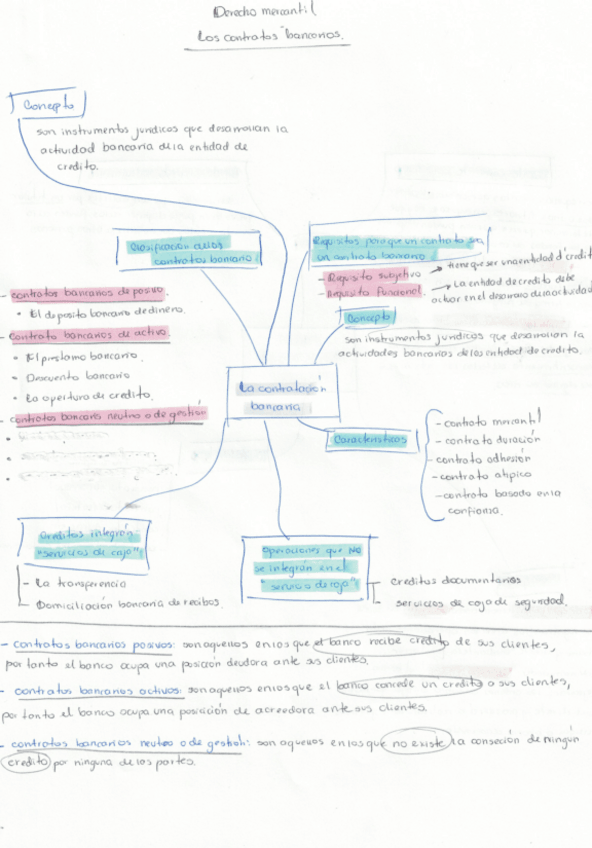 Derecho mercantil
Los contratos bancarios.
Concepto
son instrumentos juridicos que desarrollan la
actividad bancaria de la entidad de
credito.
Clasificación de los
contratos bancario:
- contratos bancarios de pasivo.
• El deposito bancario de dinero.
- contrato bancarios de activo.
• El prestamo bancario.
• Descuento bancario
• La apertura de credito.
- contratos bancarios neutro o de gestión
Requisitos para que un contrato sea
un contrato bancario
- Requisito subjetivo → tiene que ser una entidad d'credito
- Requisito Funcional. → La entidad de credito debe
actuar en el desarrollo de una actividad
Concepto
son instrumentos juridicos que desarrollan la
actividades bancarios de los entidad de credito.
La contratación
bancaria
Características
- contrato mercantil
- contrato duración
- contrato adhesión
- contrato atipico
- contrato basado en la
confianza.
Creditos integrón
"servicios de caja":
- La transferencia
- Domiciliación bancaria de recibos.
Operaciones que NO
se integrán en el
"servicio de caja":
creditos documentarios
servicios de caja de seguridad.
- contratos bancarios pasivos: son aquellos en los que el banco recibe credito de sus clientes,
por tanto el banco ocupa una posición deudora ante sus clientes.
- contratos bancarios activos: son aquellos en los que el banco concede un credito a sus clientes,
por tanto el banco ocupa una posición de acreedora ante sus clientes.
- contratos bancarios neutro o de gestión: son aquellos en los que no existe la conseción de ningún
credito por ninguna de las partes.